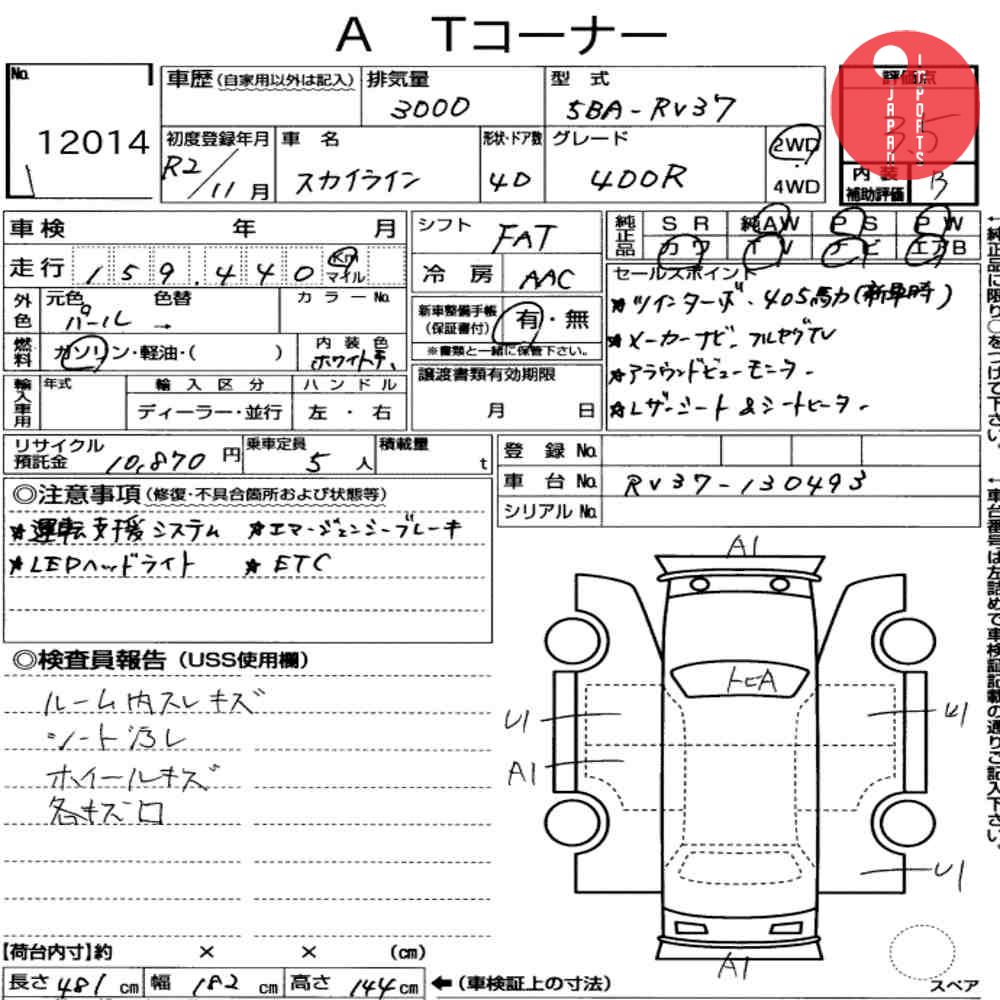 A Tコーナー
No. 12014
車歴(自家用以外は記入) 排気量 3000 型式 5BA-RV37 評価点 3.5
JAPAN IMPORTS
初度登録年月 R2/11月 車名 スカイライン 形状・ドア数 4D グレード 400R 2WD 4WD
内装補助評価 B
車検 年 月
走行 159,440 Km マイル
外色 元色 パール 色替 → カラーNo.
燃料 ガソリン・軽油・( ) 内装色 ホワイト系
輸入車用 年式 輸入区分 ディーラー・並行 ハンドル 左・右
シフト FAT
冷房 AAC
新車整備手帳(保証書付) 有・無
※書類と一緒に保管下さい。
譲渡書類有効期限 月 日
純正品 SR 純AW PS PW
カワ TV ナビ エアB
セールスポイント
★ツインターボ・405馬力(新車時)
★メーカーナビ、フルセグTV
★アラウンドビューモニター
★レザーシート&シートヒーター
←純正品に限り○をつけて下さい。
リサイクル預託金 10,870円 乗車定員 5人 積載量 t
登録No.
車台No. RV37-130493
シリアルNo.
←車台番号は左詰めで車検証記載の通りご記入下さい。
◎注意事項(修復・不具合箇所および状態等)
★運転支援システム ★エマージェンシーブレーキ
★LEDヘッドライト ★ETC
◎検査員報告(USS使用欄)
ルーム内スレキズ
シート汚レ
ホイールキズ
各キズ凹
A1
トビA
U1
A1
U1
A1
スペア
【荷台内寸】約 × × (cm)
長さ 481 cm 幅 182 cm 高さ 144 cm ←(車検証上の寸法)